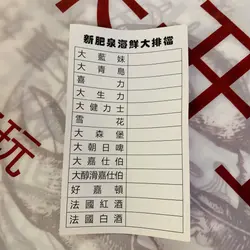 新肥泉海鮮大排檔
大藍妹
大青島
喜力
大生力
大健力士
雪花
大森堡
大朝日啤
大嘉士伯
大醇滑嘉仕伯
好嘉頓
法國紅酒
法國白酒
玩